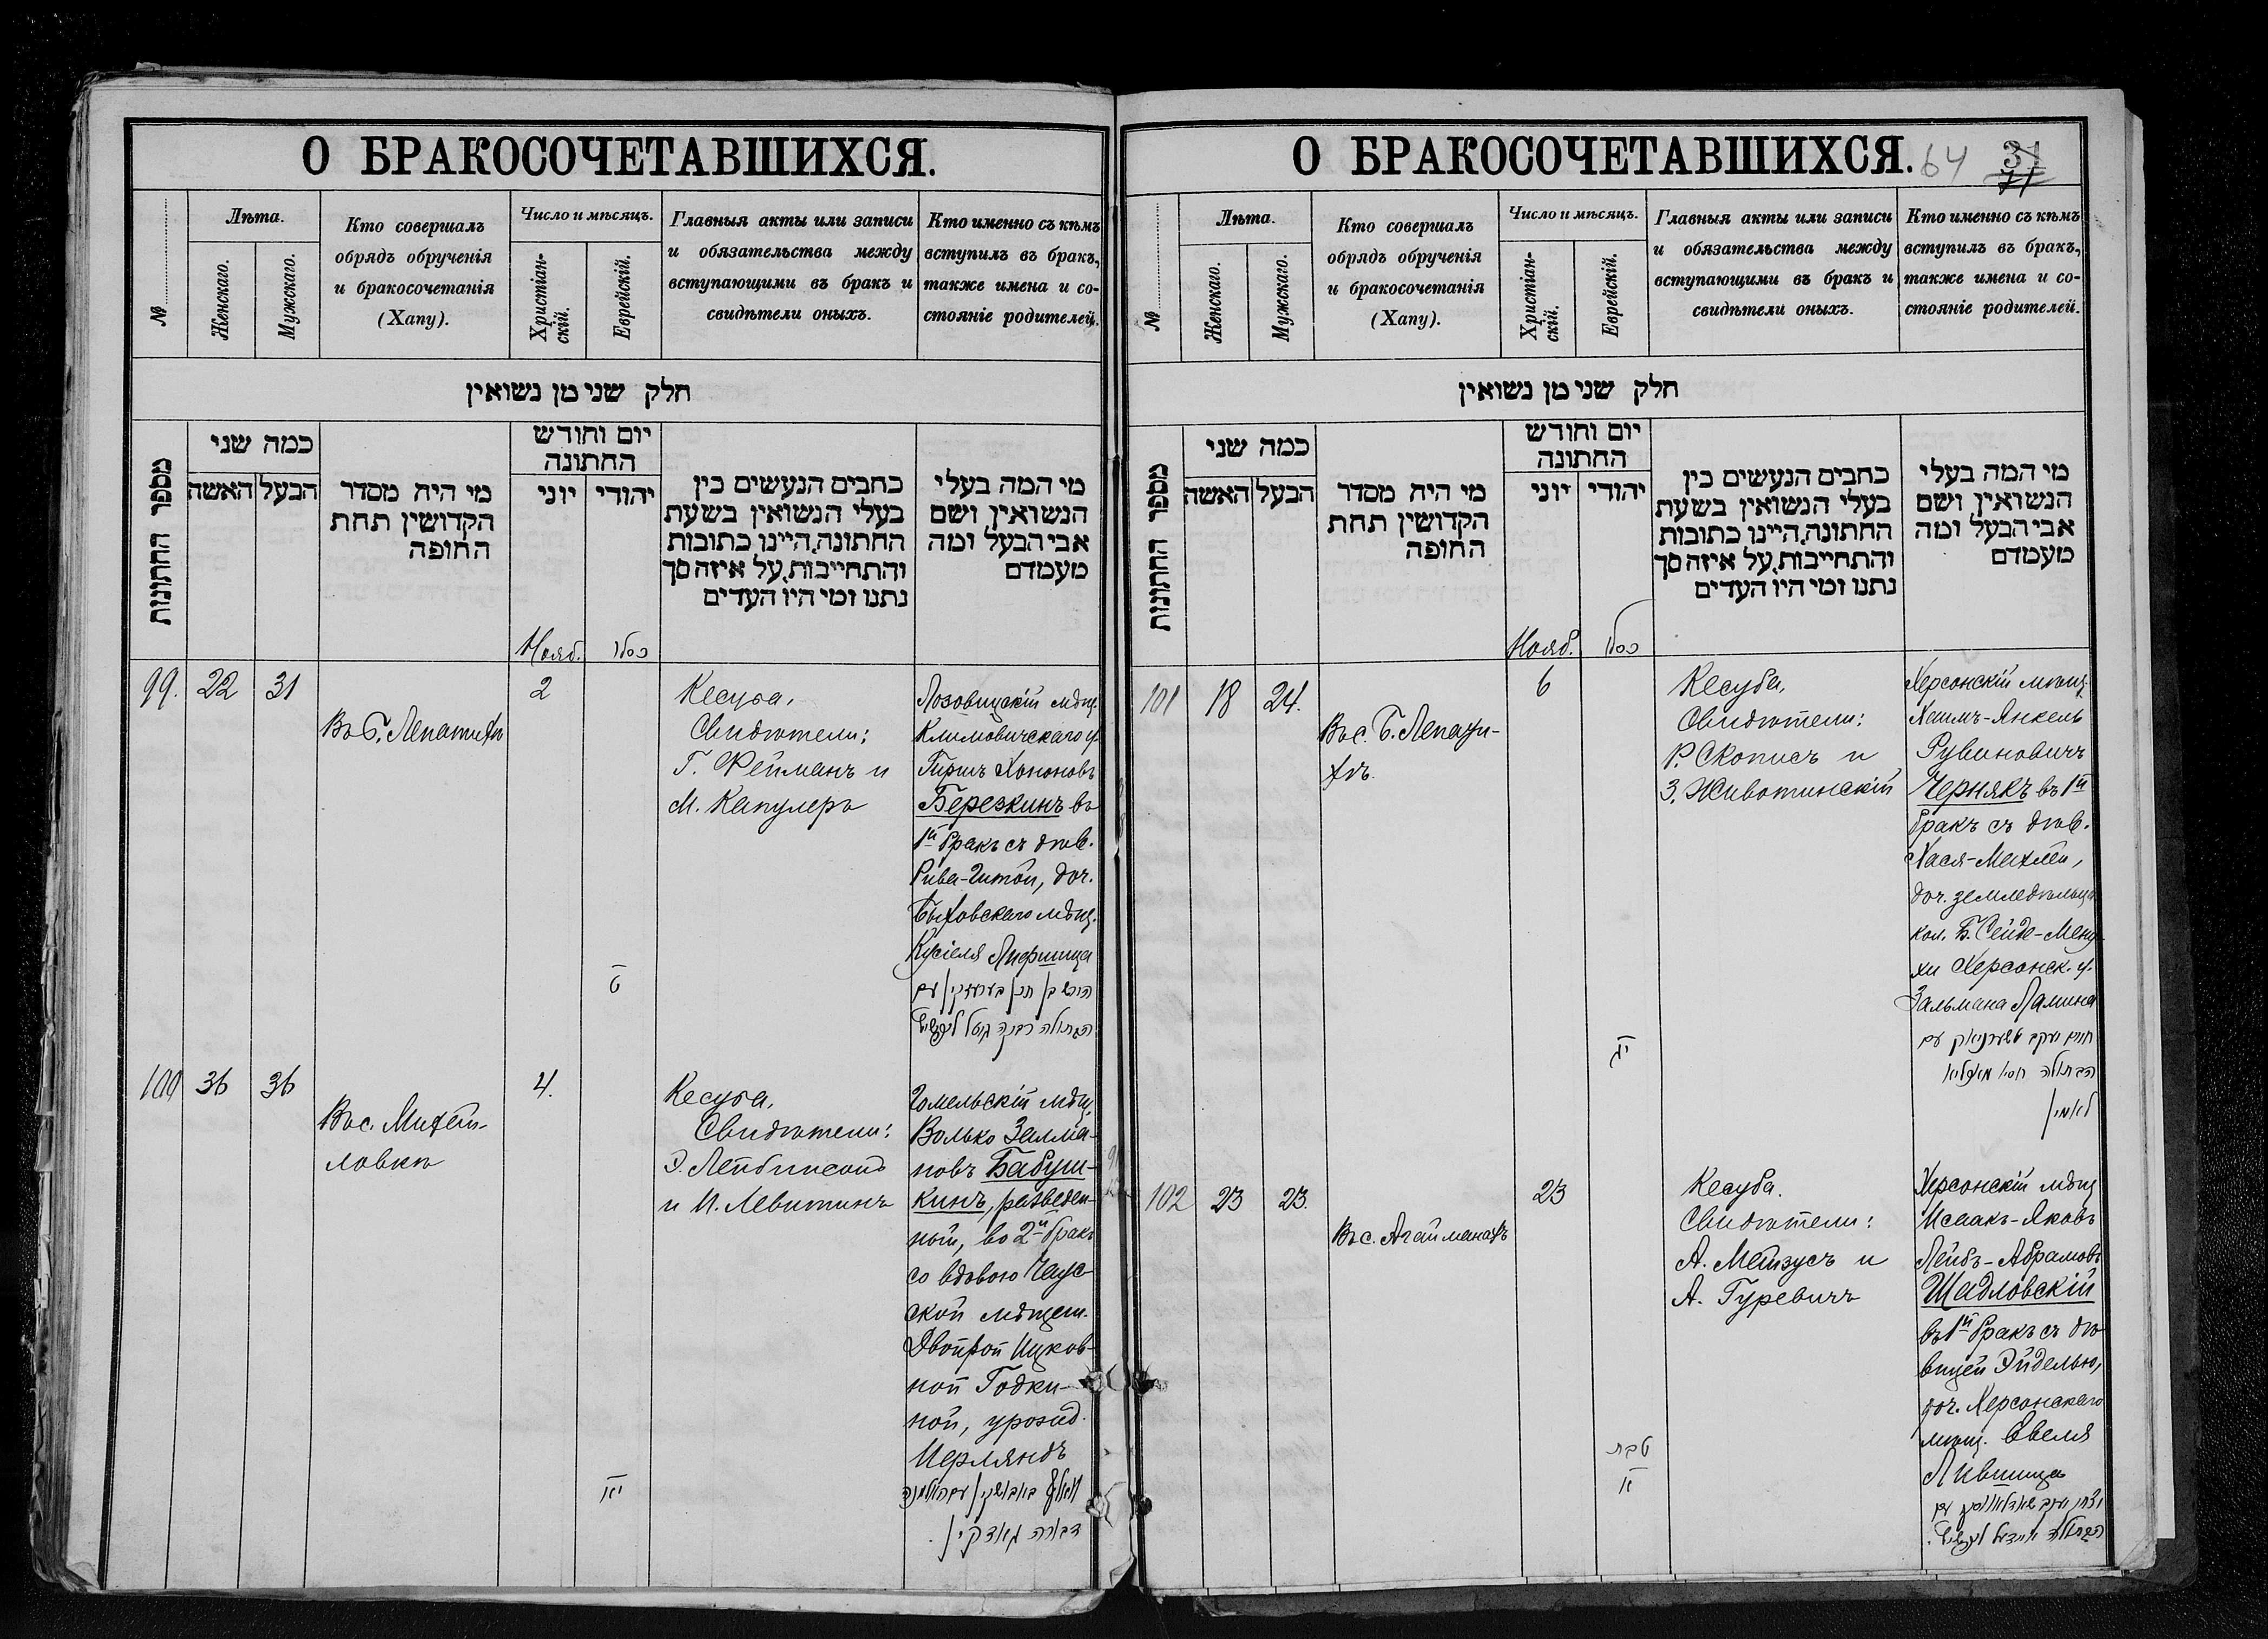 О БРАКОСОЧЕТАВШИХСЯ.
№
Лѣта.
Женскаго.
Мужскаго.
Кто совершалъ
обрядъ обрученія
и бракосочетанія
(Хапу).
Число и мѣсяцъ.
Христіан-
скій.
Еврейскій.
Главныя акты или записи
и обязательства между
вступающими въ бракъ и
свидѣтели оныхъ.
Кто именно съ кѣмъ
вступилъ въ бракъ,
также имена и со-
стояніе родителей.
חלק שני מן נשואין
מספר החתונות
כמה שני
הבעל האשה
מי היה מסדר
הקדושין תחת
החופה
יום וחודש
החתונה
יהודי יוני
כתבים הנעשים בין
בעלי הנשואין בשעת
החתונה, היינו כתובות
והתחייבות, על איזה סך
נתנו ומי היו העדים
מי המה בעלי
הנשואין ושם
אבי הבעל ומה
מעמדם
Нояб. כסלו
99. 22 31
Въ Б. Лепатихѣ
2
ט
Кесуба,
Свидѣтели:
Г. Фейманъ и
М. Капулеръ
Лозовицскій мѣщ.
Климовичскаго у.
Гиршъ Хононовъ
Березкинъ въ
1й бракъ съ дѣв.
Рива-Гитой, доч.
Быховскаго мѣщ.
Кусіеля Лифшица
הירש בן חנן בערעזקין עם
הבתולה רבקה גוטל ליפשיץ
100 36 36
Въ с. Михай-
ловкѣ
4.
יא
Кесуба,
Свидѣтели:
Э. Лейбинсонъ
и И. Левитинъ
Гомельскій мѣщ.
Волько Залма-
новъ Бабуш-
кинъ, разведен-
ный, во 2й бракъ
со вдовою Чаус-
ской мѣщан.
Двойрой Ицков-
ной Годки-
ной, урожд.
Мерляндъ
וואלף באבושקין עם האלמנה
דבורה גאדקין.
О БРАКОСОЧЕТАВШИХСЯ.
64 31
№
Лѣта.
Женскаго.
Мужскаго.
Кто совершалъ
обрядъ обрученія
и бракосочетанія
(Хапу).
Число и мѣсяцъ.
Христіан-
скій.
Еврейскій.
Главныя акты или записи
и обязательства между
вступающими въ бракъ и
свидѣтели оныхъ.
Кто именно съ кѣмъ
вступилъ въ бракъ,
также имена и со-
стояніе родителей.
חלק שני מן נשואין
מספר החתונות
כמה שני
הבעל האשה
מי היה מסדר
הקדושין תחת
החופה
יום וחודש
החתונה
יהודי יוני
כתבים הנעשים בין
בעלי הנשואין בשעת
החתונה, היינו כתובות
והתחייבות, על איזה סך
נתנו ומי היו העדים
מי המה בעלי
הנשואין ושם
אבי הבעל ומה
מעמדם
Нояб. כסלו
101 18 24.
Въ с. Б. Лепати-
хѣ.
6
יג
Кесуба,
Свидѣтели:
Р. Скописъ и
З. Животинскій
Херсонскій мѣщ.
Хаимъ-Янкель
Рувиновичъ
Чернякъ въ 1й
бракъ съ дѣв.
Хася-Махлей,
доч. земледѣльца
кол. Б. Сейде-Мену-
хи Херсонск. у.
Зальмана Ламина
חיים יעקב טשערניאק עם
הבתולה חסיא מאכליא
לאמין
102 23 23.
Въ с. Агайманахъ
23
טבת
א
Кесуба.
Свидѣтели:
А. Мейзусъ и
А. Гуревичъ
Херсонскій мѣщ
Исаакъ-Яковъ
Лейбъ-Абрамовъ
Шадловскій
въ 1й бракъ съ дѣ-
вицей Эйделью,
доч. Херсонскаго
мѣщ. Евеля
Лившица
יצחק יעקב שאדלאווסקי עם
הבתולה איידעל ליפשיץ.